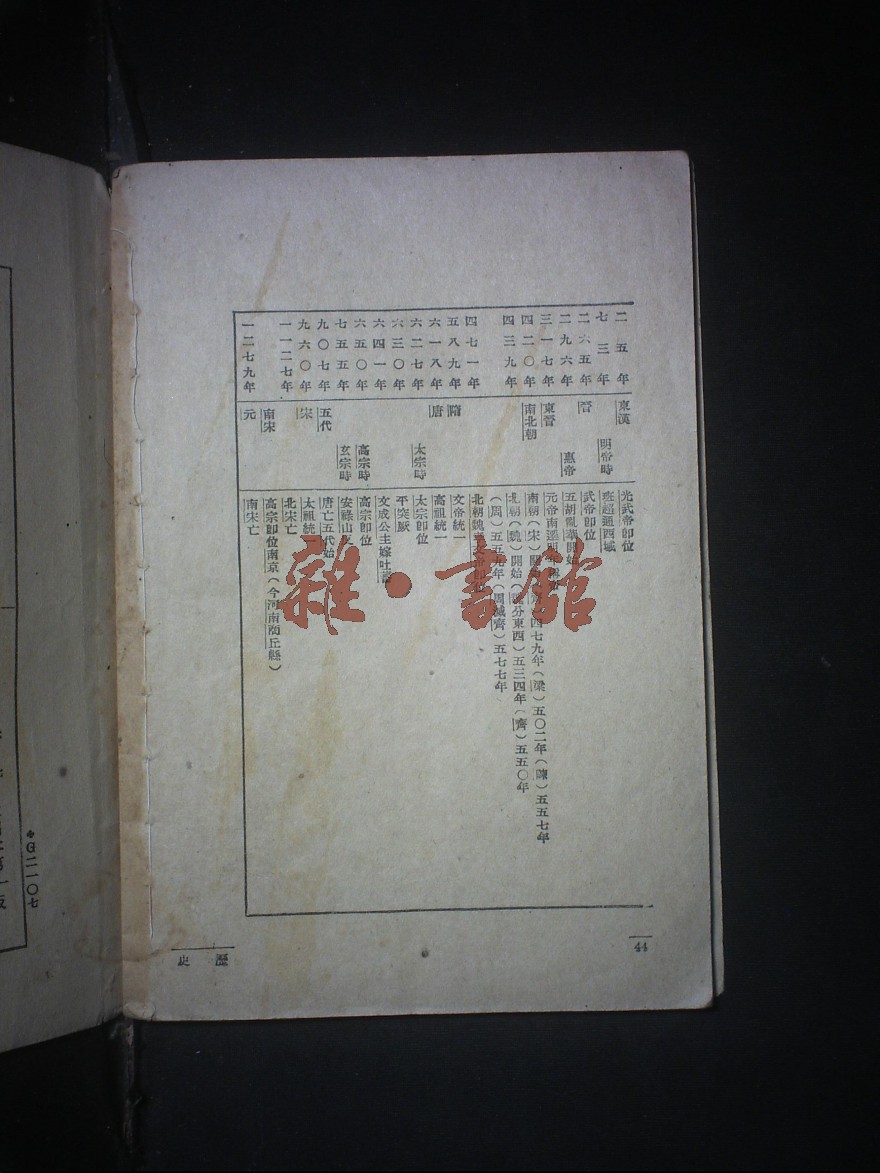 二五年 東漢 光武帝卽位
七三年 明帝時 班超通西域
二六五年 晉 武帝卽位
二九六年 惠帝 五胡亂華開始
三一七年 東晉 元帝南遷
四二〇年 南北朝 南朝（宋）開 四七九年（梁）五〇二年（陳）五五七年
四三九年 北朝（魏）開始（ 分東西）五三四年（齊）五五〇年
（周）五五九年（周滅齊）五七七年
四七一年 北朝魏孝文帝卽位
五八九年 隋 文帝統一
六一八年 唐 高祖統一
六二七年 太宗時 太宗卽位
六三〇年 平突厥
六四一年 文成公主嫁吐蕃
六五〇年 高宗時 高宗卽位
七五五年 玄宗時 安祿山反
九〇七年 五代 唐亡五代始
九六〇年 宋 太祖統一
一一二七年 北宋亡
南宋 高宗卽位南京（今河南商丘縣）
一二七九年 元 南宋亡
44
歷史
雜·書館
❖G二一〇七